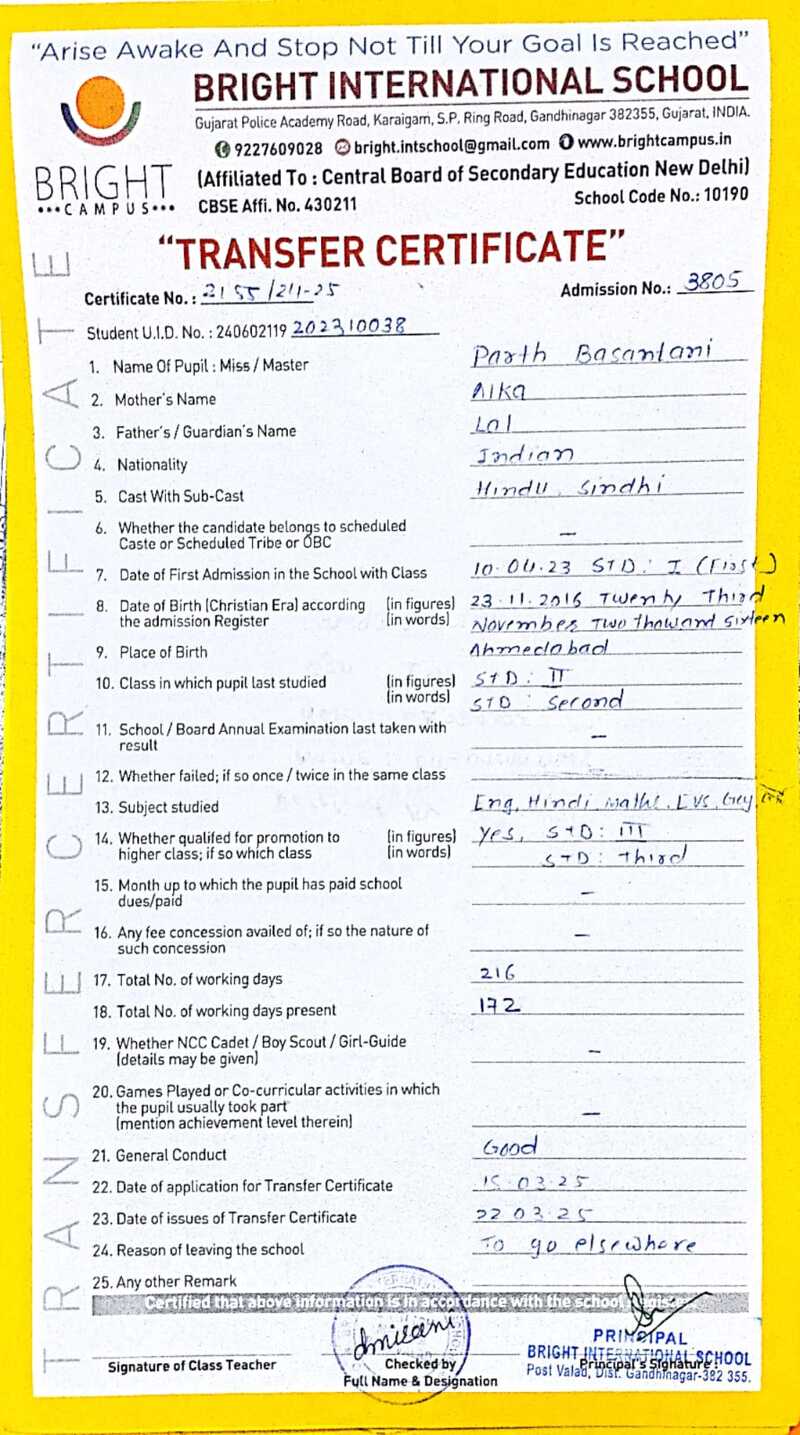 "Arise Awake And Stop Not Till Your Goal Is Reached"
BRIGHT INTERNATIONAL SCHOOL
Gujarat Police Academy Road, Karaigam, S.P. Ring Road, Gandhinagar 382355, Gujarat, INDIA.
9227609028 bright.intschool@gmail.com www.brightcampus.in
BRIGHT
•••CAMPUS•••
(Affiliated To : Central Board of Secondary Education New Delhi)
CBSE Affi. No. 430211 School Code No.: 10190
TRANSFER CERTIFICATE
"TRANSFER CERTIFICATE"
Certificate No. : 2155/24-25 Admission No.: 3805
Student U.I.D. No. : 240602119 202310038
1. Name Of Pupil : Miss / Master Parth Basantani
2. Mother's Name Alka
3. Father's / Guardian's Name Lal
4. Nationality Indian
5. Cast With Sub-Cast Hindu, Sindhi
6. Whether the candidate belongs to scheduled
Caste or Scheduled Tribe or OBC –
7. Date of First Admission in the School with Class 10.04.23 STD: I (First)
8. Date of Birth (Christian Era) according (in figures) 23.11.2016 Twenty Third
the admission Register (in words) November Two thowand sixteen
9. Place of Birth Ahmedabad
10. Class in which pupil last studied (in figures) STD: II
(in words) STD: Second
11. School / Board Annual Examination last taken with
result –
12. Whether failed; if so once / twice in the same class
13. Subject studied Eng, Hindi, Maths, EVS, Guj,
14. Whether qualifed for promotion to (in figures) Yes, STD: III
higher class; if so which class (in words) STD: Third
15. Month up to which the pupil has paid school
dues/paid –
16. Any fee concession availed of; if so the nature of
such concession –
17. Total No. of working days 216
18. Total No. of working days present 172
19. Whether NCC Cadet / Boy Scout / Girl-Guide
(details may be given) –
20. Games Played or Co-curricular activities in which
the pupil usually took part
(mention achievement level therein) –
21. General Conduct Good
22. Date of application for Transfer Certificate 15.03.25
23. Date of issues of Transfer Certificate 22.03.25
24. Reason of leaving the school To go elsewhere
25. Any other Remark
Certified that above information is in accordance with the school
PRINCIPAL
BRIGHT INTERNATIONAL SCHOOL
Post Valad, Dist. Gandhinagar-382 355.
Signature of Class Teacher Checked by Principal's Signature :
Full Name & Designation